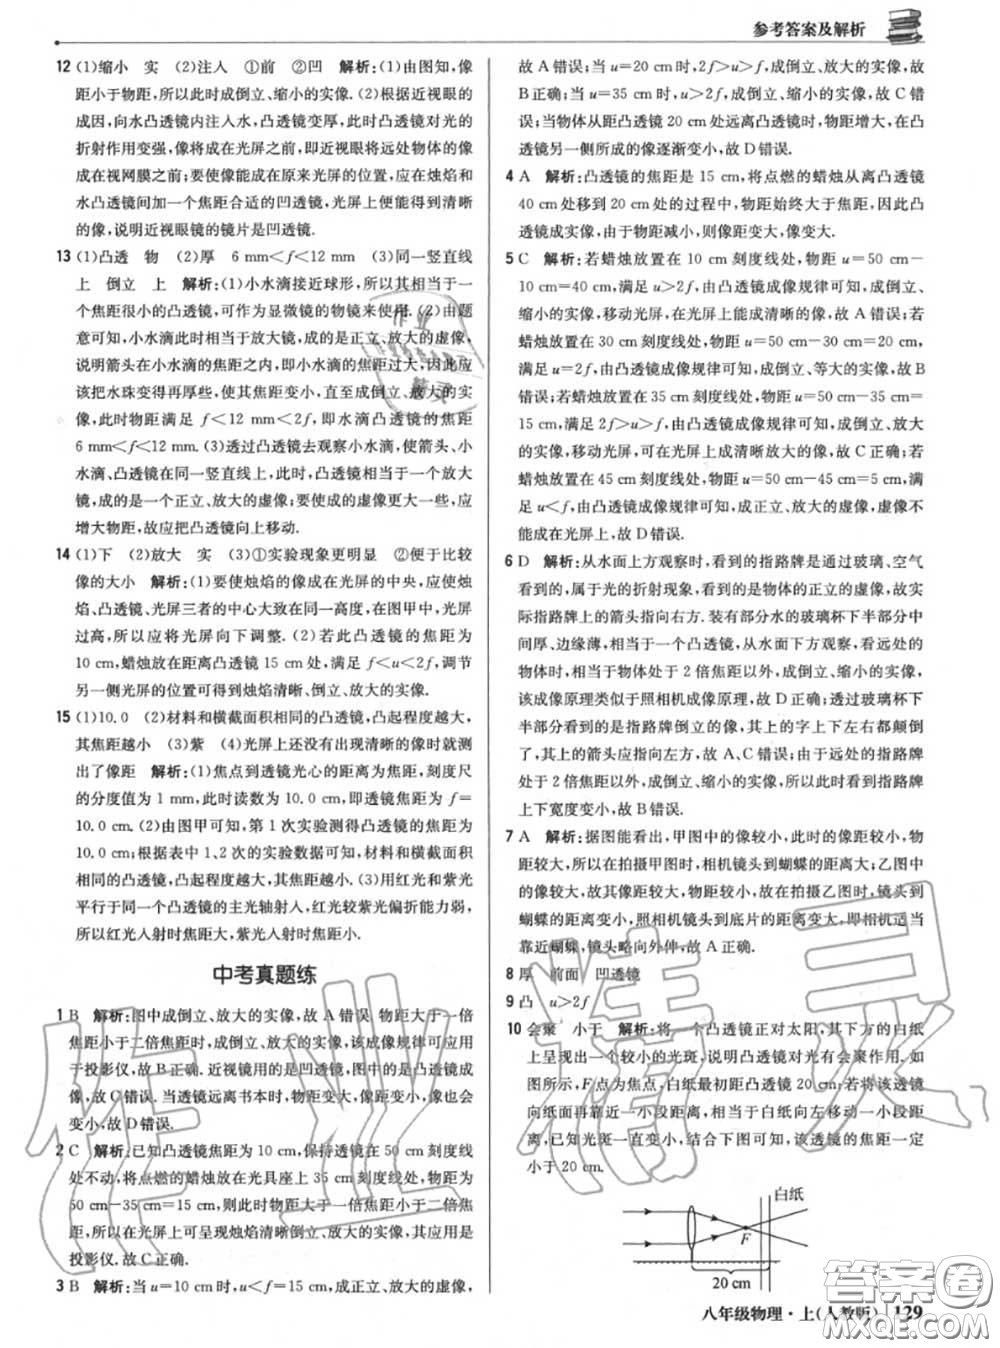 参考答案及解析
12 (1)缩小 实 (2)注入 ①前 ②凹 解析:(1)由图知,像
距小于物距,所以此时成倒立、缩小的实像. (2)根据近视眼的
成因,向水凸透镜内注入水,凸透镜变厚,此时凸透镜对光的
折射作用变强,像将成在光屏之前,即近视眼将远处物体的像
成在视网膜之前;要使像能成在原来光屏的位置,应在烛焰和
水凸透镜间加一个焦距合适的凹透镜,光屏上便能得到清晰
的像,说明近视眼镜的镜片是凹透镜.
13 (1)凸透 物 (2)厚 6 mm<f<12 mm (3)同一竖直线
上 倒立 上 解析:(1)小水滴接近球形,所以其相当于一个
焦距很小的凸透镜,可作为显微镜的物镜来使用. (2)由题
意可知,小水滴此时相当于放大镜,成的是正立、放大的虚像,
说明箭头在小水滴的焦距之内,即小水滴的焦距过大,因此应
该把水珠变得再厚些,使其焦距变小,直至成倒立、放大的实
像,此时物距满足 f<12 mm<2f,即水滴凸透镜的焦距
6 mm<f<12 mm. (3)透过凸透镜去观察小水滴,使箭头、小
水滴、凸透镜在同一竖直线上,此时,凸透镜相当于一个放大
镜,成的是一个正立、放大的虚像;要使成的虚像更大一些,应
增大物距,故应把凸透镜向上移动.
14 (1)下 (2)放大 实 (3)①实验现象更明显 ②便于比较
像的大小 解析:(1)要使烛焰的像成在光屏的中央,应使烛
焰、凸透镜、光屏三者的中心大致在同一高度,在图甲中,光屏
过高,所以应将光屏向下调整. (2)若此凸透镜的焦距为
10 cm,蜡烛放在距离凸透镜 15 cm 处,满足 f<u<2f,调节
另一侧光屏的位置可得到烛焰清晰、倒立、放大的实像.
15 (1)10.0 (2)材料和横截面积相同的凸透镜,凸起程度越大,
其焦距越小 (3)紫 (4)光屏上还没有出现清晰的像时就测
出了像距 解析:(1)焦点到透镜光心的距离为焦距,刻度尺
的分度值为 1 mm,此时读数为 10.0 cm,即透镜焦距为 f=
10.0 cm. (2)由图甲可知,第 1 次实验测得凸透镜的焦距为
10.0 cm;根据表中 1、2 次的实验数据可知,材料和横截面积
相同的凸透镜,凸起程度越大,其焦距越小. (3)用红光和紫光
平行于同一个凸透镜的主光轴射入,红光较紫光偏折能力弱,
所以红光入射时焦距大,紫光入射时焦距小.
中考真题练
1 B 解析:图中成倒立、放大的实像,故 A 错误. 物距大于一倍
焦距小于二倍焦距时,成倒立、放大的实像,该成像规律可应用
于投影仪,故 B 正确. 近视镜用的是凹透镜,图中的是凸透镜成
像,故 C 错误. 当透镜远离书本时,物距变大,像距变小,像也会
变小,故 D 错误.
2 C 解析:已知凸透镜焦距为 10 cm,保持透镜在 50 cm 刻度线
处不动,将点燃的蜡烛放在光具座上 35 cm 刻度线处,物距为
50 cm-35 cm=15 cm,则此时物距大于一倍焦距小于二倍焦
距,在光屏上可呈现烛焰清晰倒立、放大的实像,其应用是
投影仪. 故 C 正确.
3 B 解析:当 u=10 cm 时,u<f=15 cm,成正立、放大的虚像,
故 A 错误;当 u=20 cm 时,2f>u>f,成倒立、放大的实像,故
B 正确;当 u=35 cm 时,u>2f,成倒立、缩小的实像,故 C 错
误;当物体从距凸透镜 20 cm 处远离凸透镜时,物距增大,在凸
透镜另一侧所成的像逐渐变小,故 D 错误.
4 A 解析:凸透镜的焦距是 15 cm,将点燃的蜡烛从离凸透镜
40 cm 处移到 20 cm 处的过程中,物距始终大于焦距,因此凸
透镜成实像,由于物距减小,则像距变大,像变大.
5 C 解析:若蜡烛放置在 10 cm 刻度线处,物距 u=50 cm-
10 cm=40 cm,满足 u>2f,由凸透镜成像规律可知,成倒立、
缩小的实像,移动光屏,在光屏上能成清晰的像,故 A 错误. 若
蜡烛放置在 30 cm 刻度线处,物距 u=50 cm-30 cm=20 cm,
满足 u=2f,由凸透镜成像规律可知,成倒立、等大的实像,故 B
错误. 若蜡烛放置在 35 cm 刻度线处,物距 u=50 cm-35 cm=
15 cm,满足 2f>u>f,由凸透镜成像规律可知,成倒立、放大的
实像,移动光屏,可在光屏上成清晰放大的实像,故 C 正确. 若
蜡烛放置在 45 cm 刻度线处,物距 u=50 cm-45 cm=5 cm,满
足 u<f,由凸透镜成像规律可知,成正立、放大的虚像,虚像不
能成在光屏上,故 D 错误.
6 D 解析:从水面上方观察时,看到的指路牌是通过玻璃、空气
看到的,属于光的折射现象,看到的是物体的正立的虚像,故实
际指路牌上的箭头指向右方. 装有部分水的玻璃杯下半部分中
间厚、边缘薄,相当于一个凸透镜,从水面下方观察,看远处的
物体时,相当于物体处于 2 倍焦距以外,成倒立、缩小的实像,
该成像原理类似于照相机成像原理,故 D 正确;透过玻璃杯下
半部分看到的是指路牌倒立的像,其上的字上下左右都颠倒
了,其上的箭头应指向左方,故 A、C 错误;由于远处的指路牌
处于 2 倍焦距以外,成倒立、缩小的实像,所以看到指路牌
上下宽度变小,故 B 错误.
7 A 解析:据图能看出,甲图中的像较小,此时的像距较小,物
距较大,所以在拍摄甲图时,相机镜头到蝴蝶的距离大;乙图中
的像较大,故其像距较大,物距较小,故在拍摄乙图时,镜头到
蝴蝶的距离变小,照相机镜头到底片的距离变大,即照相机应当
靠近蝴蝶,镜头略向外伸,故 A 正确.
8 厚 前面 凹透镜
9 凸 u>2f
10 会聚 小于 解析:将一个凸透镜正对太阳,其下方的白纸
上呈现出一个较小的光斑,说明凸透镜对光有会聚作用. 如
图所示,F 点为焦点,白纸最初距凸透镜 20 cm,若将该透镜
向纸面再靠近一小段距离,相当于白纸向左移动一小段距
离,已知光斑一直变小,结合下图可知,该透镜的焦距一定
小于 20 cm.
白纸
F
20 cm
八年级物理·上(人教版) 129
作业
精灵
答案圈
MXQE.COM